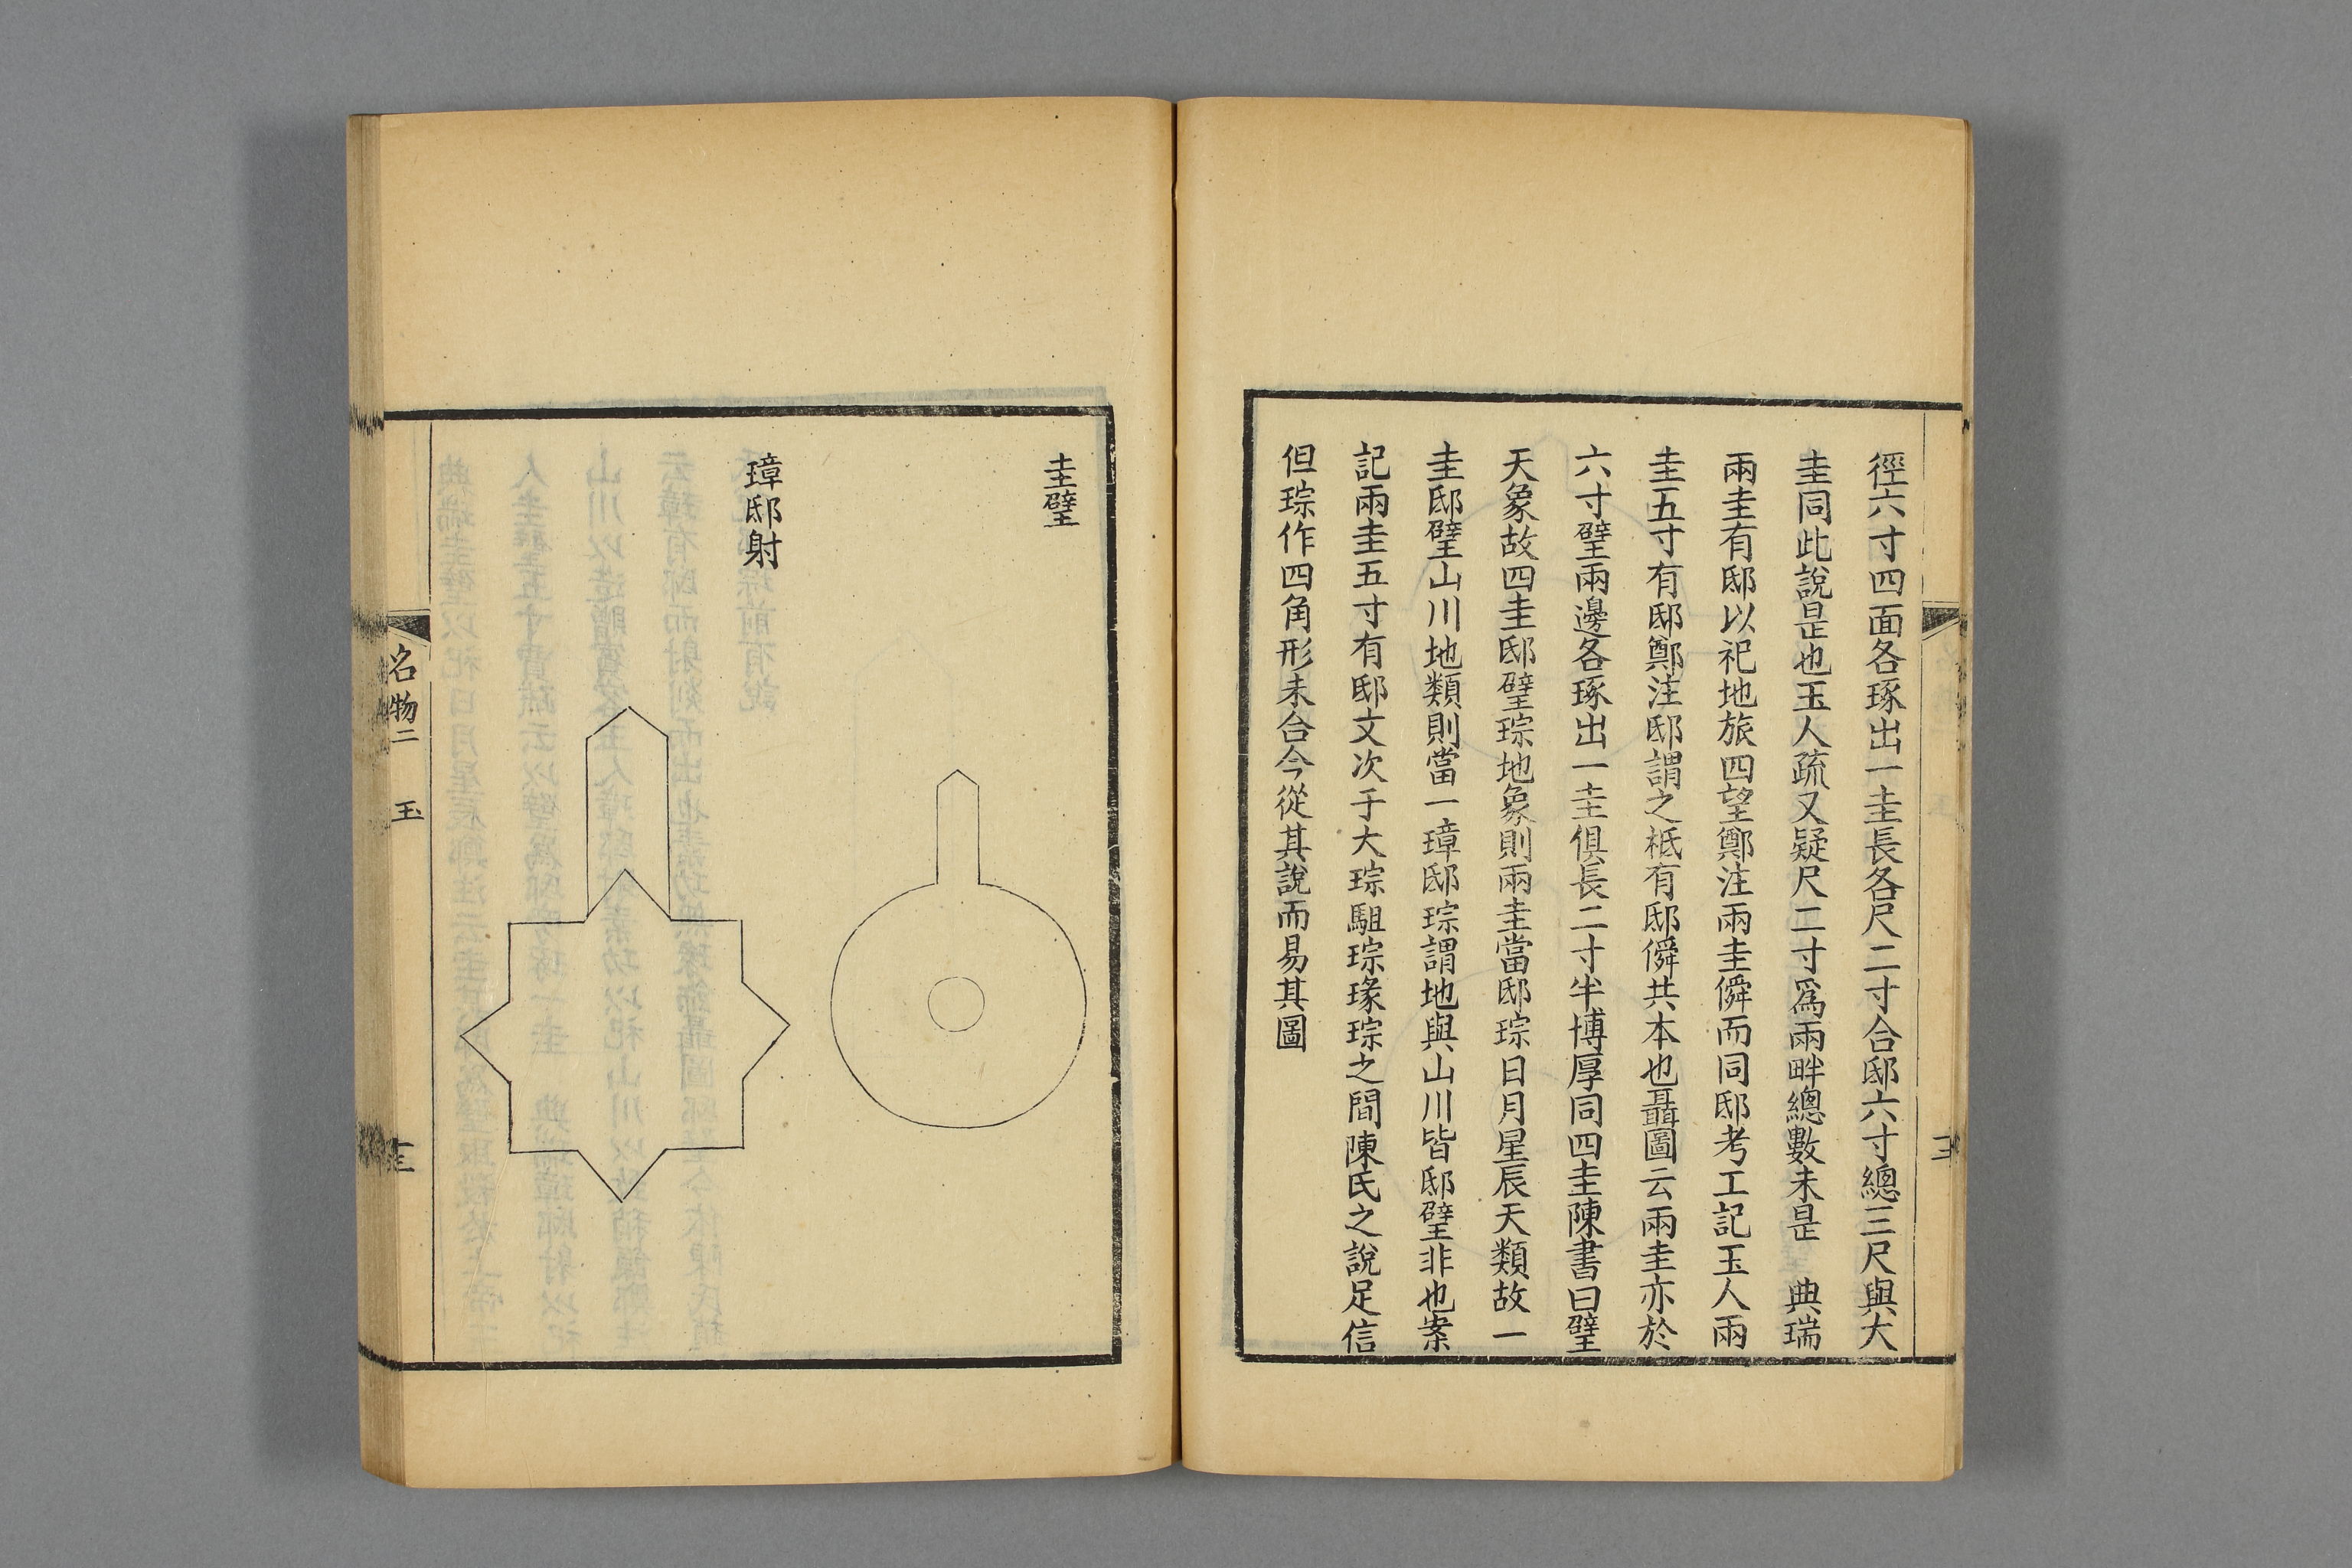 徑六寸四面各琢出一圭長各尺二寸合邸六寸總三尺與大
圭同此說是也玉人疏又疑尺二寸爲兩畔總數未是　典瑞
兩圭有邸以祀地旅四望鄭注兩圭僢而同邸考工記玉人兩
圭五寸有邸鄭注邸謂之柢有邸僢共本也聶圖云兩圭亦於
六寸璧兩邊各琢出一圭俱長二寸半博厚同四圭陳書曰璧
天象故四圭邸璧琮地象則兩圭當邸琮日月星辰天類故一
圭邸璧山川地類則當一璋邸琮謂地與山川皆邸璧非也案
記兩圭五寸有邸文次于大琮駔琮瑑琮之間陳氏之說足信
但琮作四角形未合今從其說而易其圖
圭璧
璋邸射
名物二　玉